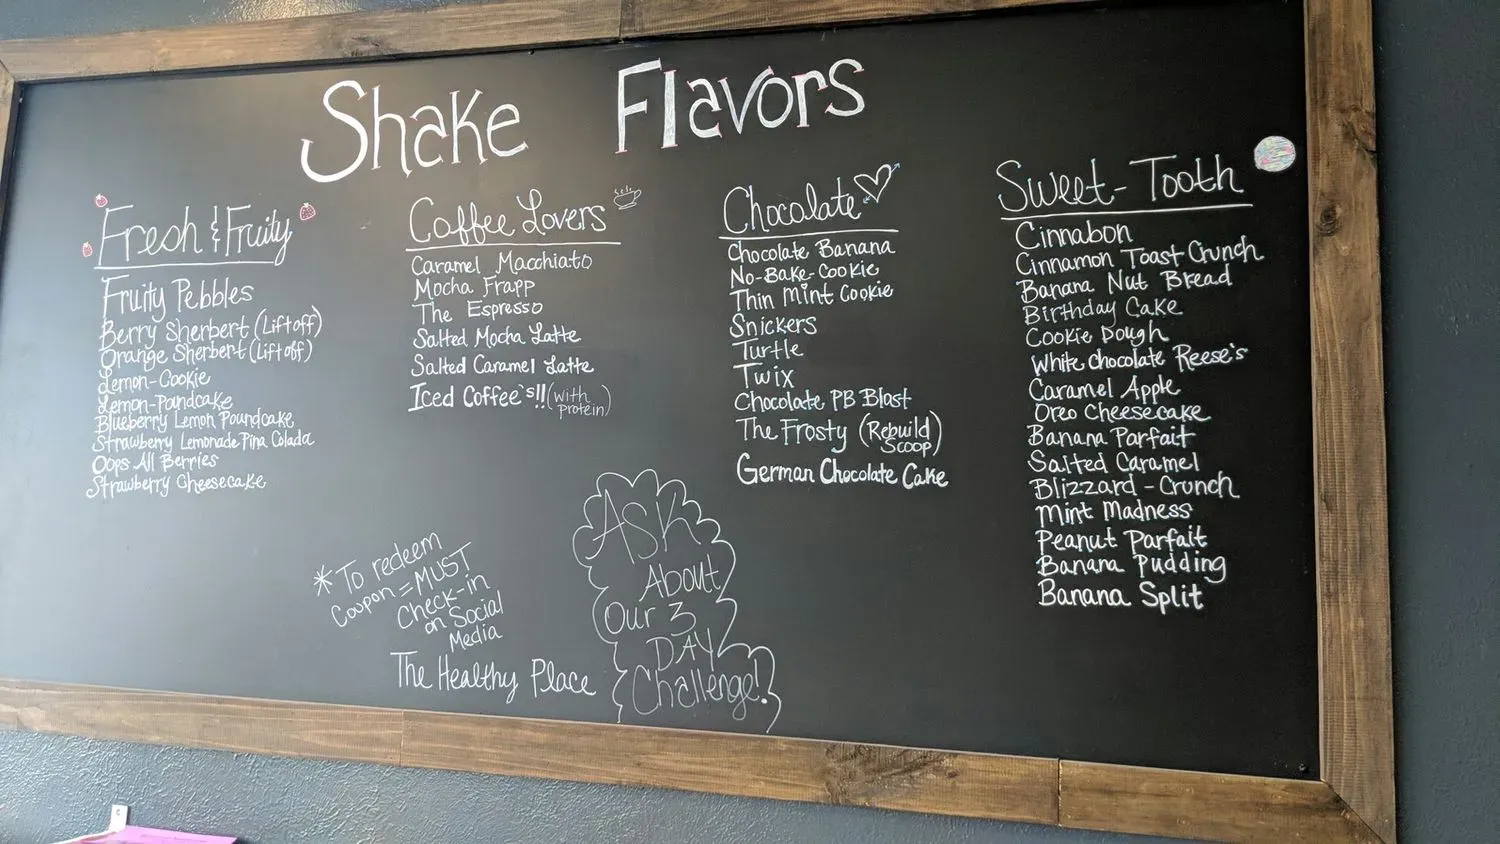 Shake Flavors
Fresh & Fruity
Fruity Pebbles
Berry Sherbert (Liftoff)
Orange Sherbert (Liftoff)
Lemon-Cookie
Lemon-Poundcake
Blueberry Lemon Poundcake
Strawberry Lemonade Pina Colada
Oops All Berries
Strawberry Cheesecake
Coffee Lovers
Caramel Macchiato
Mocha Frapp
The Espresso
Salted Mocha Latte
Salted Caramel Latte
Iced Coffee's!! (with
protein)
Chocolate
Chocolate Banana
No-Bake-Cookie
Thin Mint Cookie
Snickers
Turtle
Twix
Chocolate PB Blast
The Frosty (Rebuild
Scoop)
German Chocolate Cake
Sweet-Tooth
Cinnabon
Cinnamon Toast Crunch
Banana Nut Bread
Birthday Cake
Cookie Dough
White Chocolate Reese's
Caramel Apple
Oreo Cheesecake
Banana Parfait
Salted Caramel
Blizzard-Crunch
Mint Madness
Peanut Parfait
Banana Pudding
Banana Split
*To redeem
Coupon = MUST
Check-in
on Social
Media
The Healthy Place
ASK
About
Our 3
DAY
Challenge!